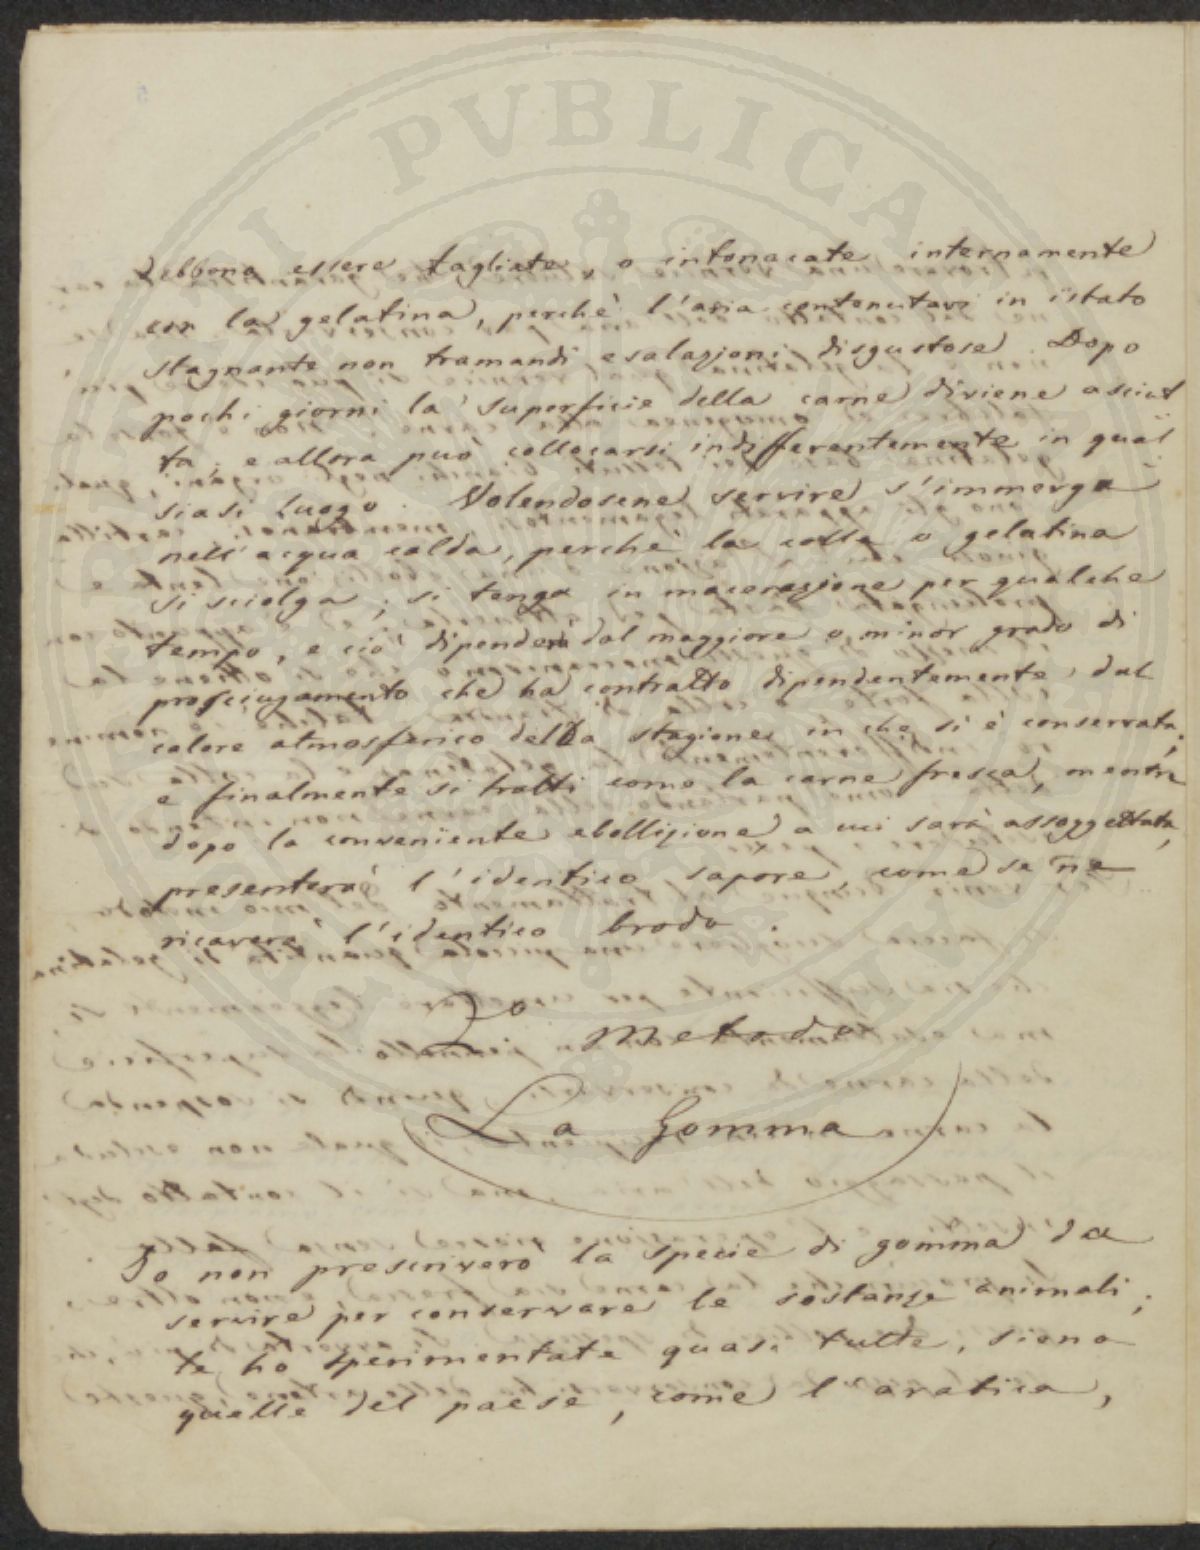 debbono essere tagliate, o intonacate internamente
con la gelatina, perchè l'aria contenutavi in istato
stagnante non tramandi esalazioni disgustose. Dopo
pochi giorni la superficie della carne diviene asciut
ta; e allora può collocarsi indifferentemente in qual
siasi luogo. Volendosene servire s'immerga
nell'acqua calda, perchè la colla o gelatina
si sciolga; si tenga in macerazione per qualche
tempo, e ciò dipenderà dal maggiore o minor grado di
prosciugamento che ha contratto dipendentemente dal
calore atmosferico della stagione in che si è conservata;
e finalmente si tratti come la carne fresca, mentre
dopo la conveniente ebollizione a cui sarà assoggettata,
presenterà l'identico sapore, come se ne
ricaverà l'identico brodo.
2o metodo
La Gomma
Io non prescriverò la specie di gomma da
servire per conservare le sostanze animali;
le ho sperimentate quasi tutte, sieno
quelle del paese, come l'arabica,
PVBLICA